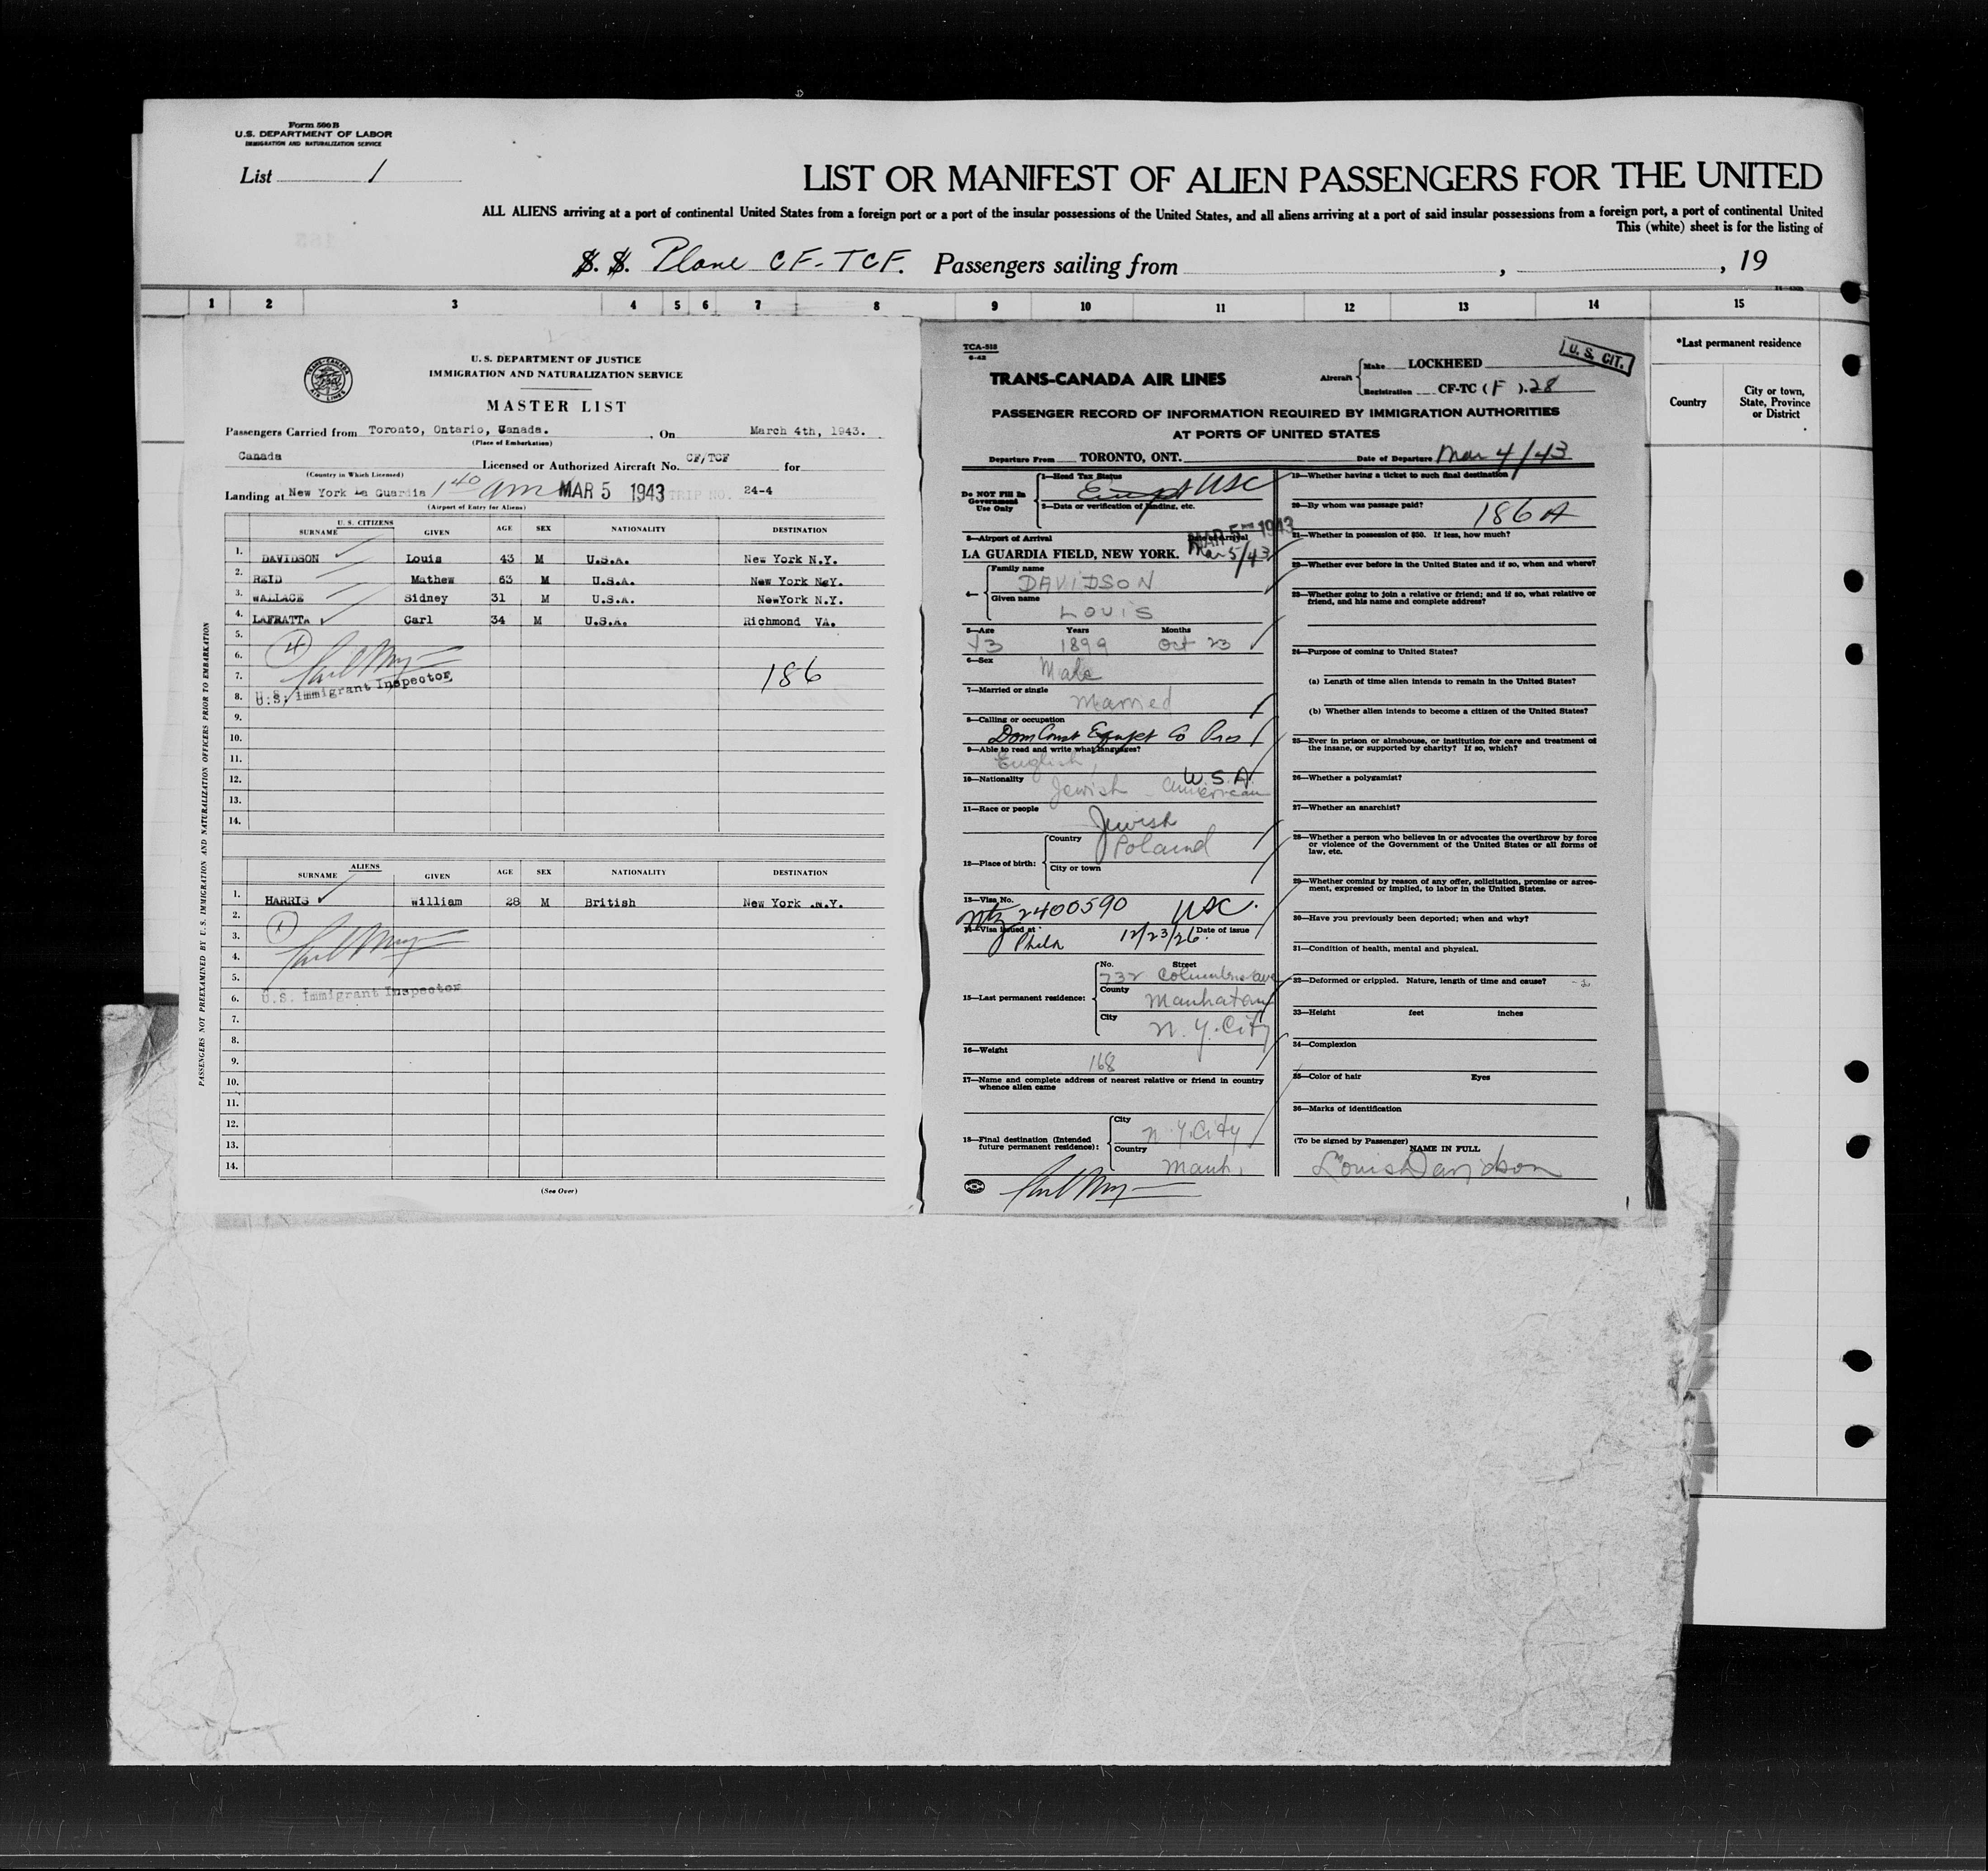 Form 500 B
U.S. DEPARTMENT OF LABOR
IMMIGRATION AND NATURALIZATION SERVICE
List 1
LIST OR MANIFEST OF ALIEN PASSENGERS FOR THE UNITED
ALL ALIENS arriving at a port of continental United States from a foreign port or a port of the insular possessions of the United States, and all aliens arriving at a port of said insular possessions from a foreign port, a port of continental United
This (white) sheet is for the listing of
S. S. Plane CF-TCF. Passengers sailing from , , 19
1 2 3 4 5 6 7 8 9 10 11 12 13 14 15
*Last permanent residence
Country City or town, State, Province or District
TRANS-CANADA AIR LINES
U. S. DEPARTMENT OF JUSTICE
IMMIGRATION AND NATURALIZATION SERVICE
MASTER LIST
Passengers Carried from Toronto, Ontario, Canada. , On March 4th, 1943.
(Place of Embarkation)
Canada Licensed or Authorized Aircraft No. CF/TCF for
(Country in Which Licensed)
Landing at New York La Guardia 1 40 am MAR 5 1943 TRIP NO. 24-4
(Airport of Entry for Aliens)
U. S. CITIZENS
SURNAME GIVEN AGE SEX NATIONALITY DESTINATION
1. DAVIDSON Louis 43 M U.S.A. New York N.Y.
2. REID Mathew 63 M U.S.A. New York N&Y.
3. WALLACE Sidney 31 M U.S.A. NewYork N.Y.
4. LAFRATTA Carl 34 M U.S.A. Richmond VA.
5.
6. 4
7. 186
8. U.S. Immigrant Inspector
9.
10.
11.
12.
13.
14.
ALIENS
SURNAME GIVEN AGE SEX NATIONALITY DESTINATION
1. HARRIS William 28 M British New York .N.Y.
2. 1
3.
4.
5.
6. U.S. Immigrant Inspector
7.
8.
9.
10.
11.
12.
13.
14.
(See Over)
PASSENGERS NOT PREEXAMINED BY U. S. IMMIGRATION AND NATURALIZATION OFFICERS PRIOR TO EMBARKATION
TCA-515
6-42
TRANS-CANADA AIR LINES
Aircraft Make LOCKHEED
Registration CF-TC (F).28
U. S. CIT.
PASSENGER RECORD OF INFORMATION REQUIRED BY IMMIGRATION AUTHORITIES
AT PORTS OF UNITED STATES
Departure From TORONTO, ONT. Date of Departure Mar 4/43
Do NOT Fill In Government Use Only
1—Head Tax Status
USC
2—Data or verification of landing, etc.
3—Airport of Arrival Date of Arrival
MAR 5 1943
LA GUARDIA FIELD, NEW YORK. Mar 5/43
4— Family name
DAVIDSON
Given name
LOUIS
5—Age Years Months
43 1899 Oct 23
6—Sex
Male
7—Married or single
Married
8—Calling or occupation
Dom Const Co
9—Able to read and write what languages?
English,
10—Nationality U.S.A.
Jewish - American
11—Race or people
Jewish
12—Place of birth: Country
Poland
City or town
13—Visa No.
Ntz 2400590 USC.
14—Visa issued at Date of issue
Phila 12/23/26.
15—Last permanent residence: No. Street
732 Columbus ave
County
Manhatan
City
N. Y. City
16—Weight
168
17—Name and complete address of nearest relative or friend in country
whence alien came
18—Final destination (Intended future permanent residence): City
N. Y. City
Country
Manh.
19—Whether having a ticket to such final destination
20—By whom was passage paid?
186 A
21—Whether in possession of $50. If less, how much?
22—Whether ever before in the United States and if so, when and where?
23—Whether going to join a relative or friend; and if so, what relative or
friend, and his name and complete address?
24—Purpose of coming to United States?
(a) Length of time alien intends to remain in the United States?
(b) Whether alien intends to become a citizen of the United States?
25—Ever in prison or almshouse, or institution for care and treatment of
the insane, or supported by charity? If so, which?
26—Whether a polygamist?
27—Whether an anarchist?
28—Whether a person who believes in or advocates the overthrow by force
or violence of the Government of the United States or all forms of
law, etc.
29—Whether coming by reason of any offer, solicitation, promise or agree-
ment, expressed or implied, to labor in the United States.
30—Have you previously been deported; when and why?
31—Condition of health, mental and physical.
32—Deformed or crippled. Nature, length of time and cause?
33—Height feet inches
34—Complexion
35—Color of hair Eyes
36—Marks of identification
(To be signed by Passenger) NAME IN FULL
Louis Davidson